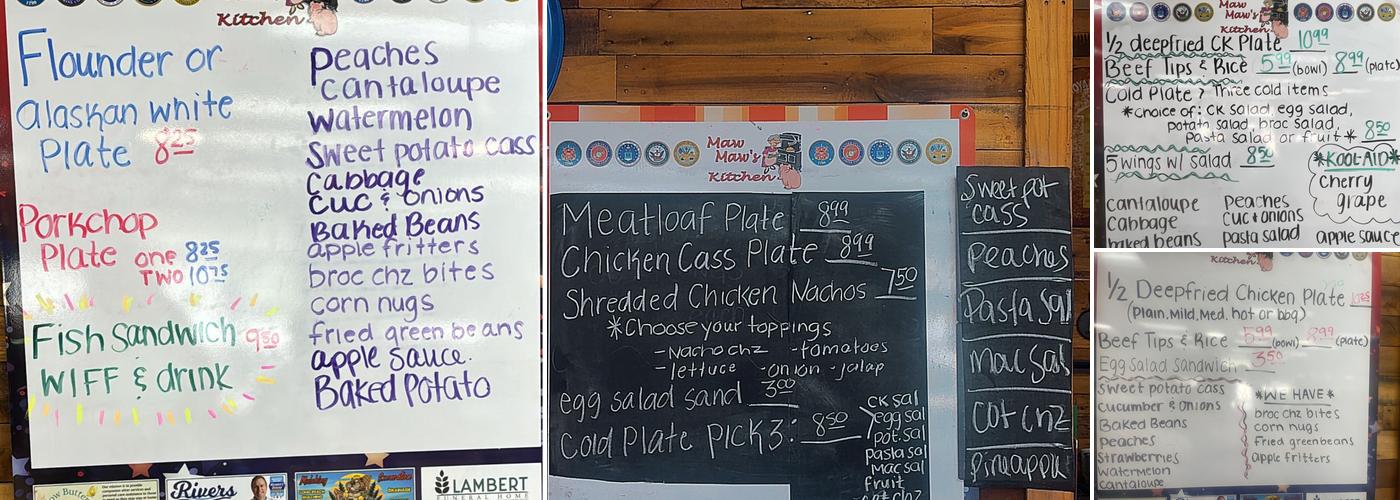 Kitchen
Flounder or
Alaskan white
Plate 8.25
Porkchop
Plate one 8.25
TWO 10.75
Fish Sandwich 9.50
W/FF & drink
Peaches
Cantaloupe
Watermelon
Sweet potato cass
Cabbage
Cuc & Onions
Baked Beans
apple fritters
broc chz bites
corn nugs
fried green beans
apple sauce.
Baked Potato
Rivers
LAMBERT
FUNERAL HOME
Maw
Maw's
Kitchen
Meatloaf Plate 8.99
Chicken Cass Plate 8.99
Shredded Chicken Nachos 7.50
*Choose your toppings
-Nacho chz -tomatoes
-lettuce -onion -jalap
egg salad sand 3.00
Cold Plate PICK 3: 8.50
CK sal
egg sal
pot. sal
pasta sal
Mac sal
fruit
cot chz
Sweet pot
cass
Peaches
Pasta Sal
Mac Sal
Cot Chz
Pineapple
Maw
Maw's
Kitchen
1/2 deepfried CK Plate 10.99
Beef Tips & Rice 5.99 (bowl) 8.99 (plate)
Cold Plate? Three cold items
*choice of: CK salad, egg salad,
potato salad, broc salad,
Pasta salad or fruit* 8.50
5 wings w/ salad 8.50
*KOOL-AID*
cherry
grape
cantaloupe
Cabbage
baked beans
Peaches
Cuc & onions
pasta salad
apple sauce
Kitchen
1/2 Deepfried Chicken Plate
(Plain, Mild, Med, hot or bbq)
Beef Tips & Rice 5.99 (bowl) 8.99 (plate)
Egg Salad Sandwich 3.50
Sweet potato cass
Cucumber & Onions
Baked Beans
Peaches
Strawberries
Watermelon
Cantaloupe
*WE HAVE*
broc chz bites
corn nugs
Fried greenbeans
apple fritters